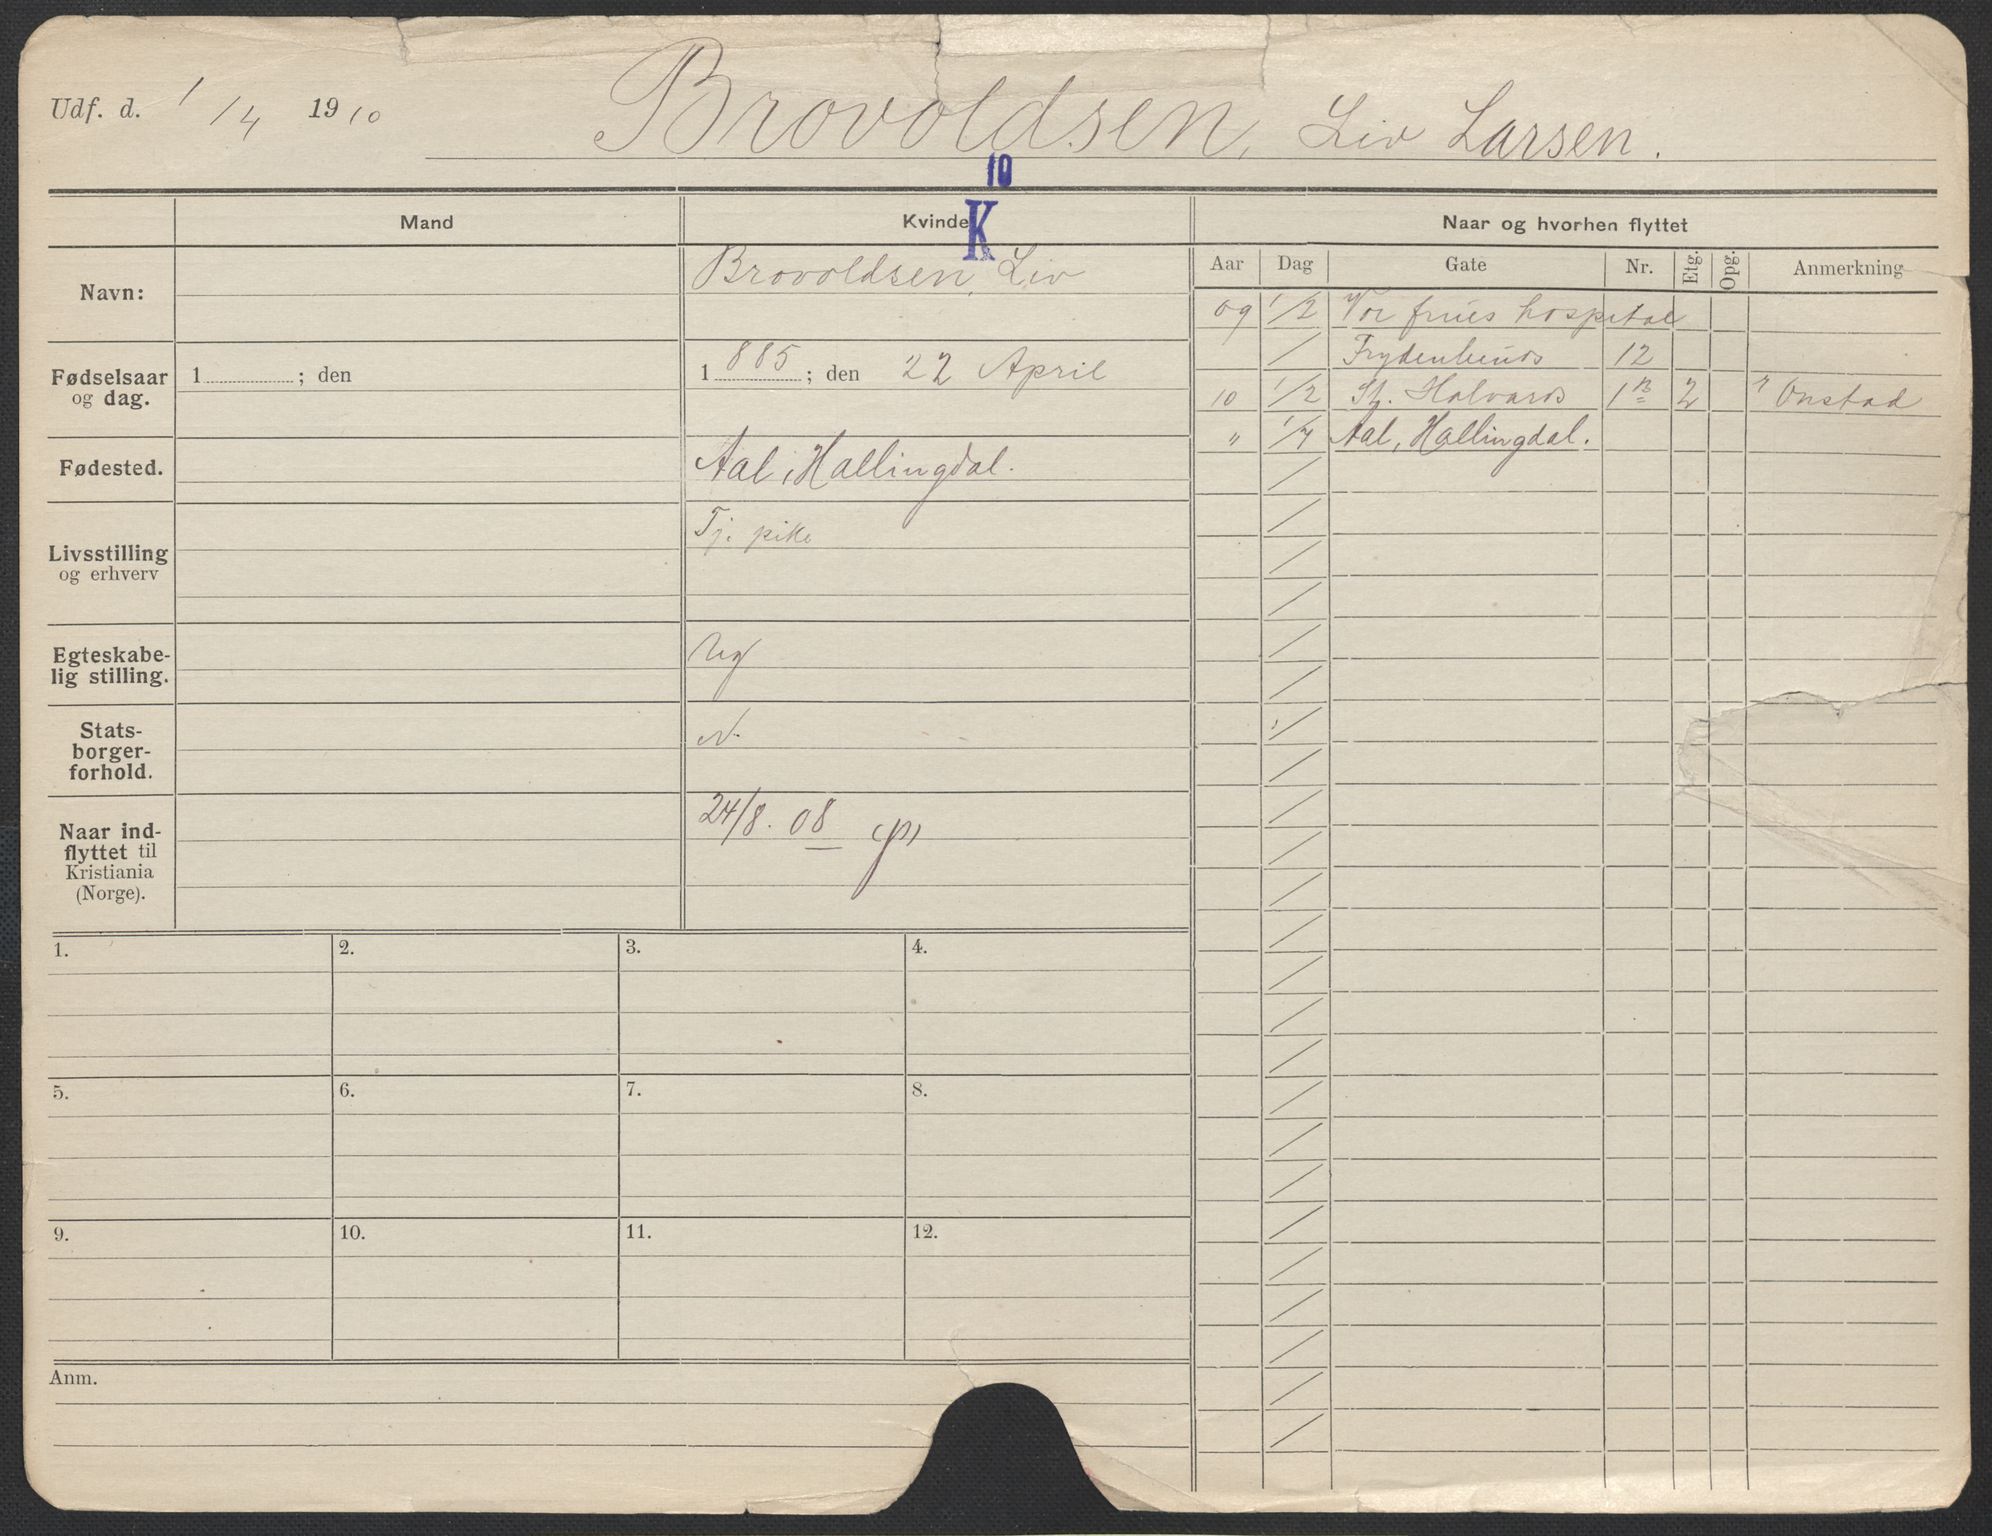 Udf. d. 1/4 1910 Brovoldsen, Liv Larsen.
10
K
Mand Kvinde Naar og hvorhen flyttet
Aar Dag Gate Nr. Etg. Opg. Anmerkning
Navn: Brovoldsen, Liv
Fødselsaar og dag. 1 ; den 1885 ; den 22 April
Fødested. Aal, Hallingdal.
Livsstilling og erhverv Tj. pike
Egteskabe-
lig stilling. Ug
Stats-
borger-
forhold. N.
Naar ind-
flyttet til
Kristiania
(Norge). 24/8. 08
09 1/2 Vor frues hospital
/ Frydenlunds 12
10 1/2 St. Halvards 1B 2 " Onstad
" 1/4 Aal, Hallingdal.
1. 2. 3. 4.
5. 6. 7. 8.
9. 10. 11. 12.
Anm.